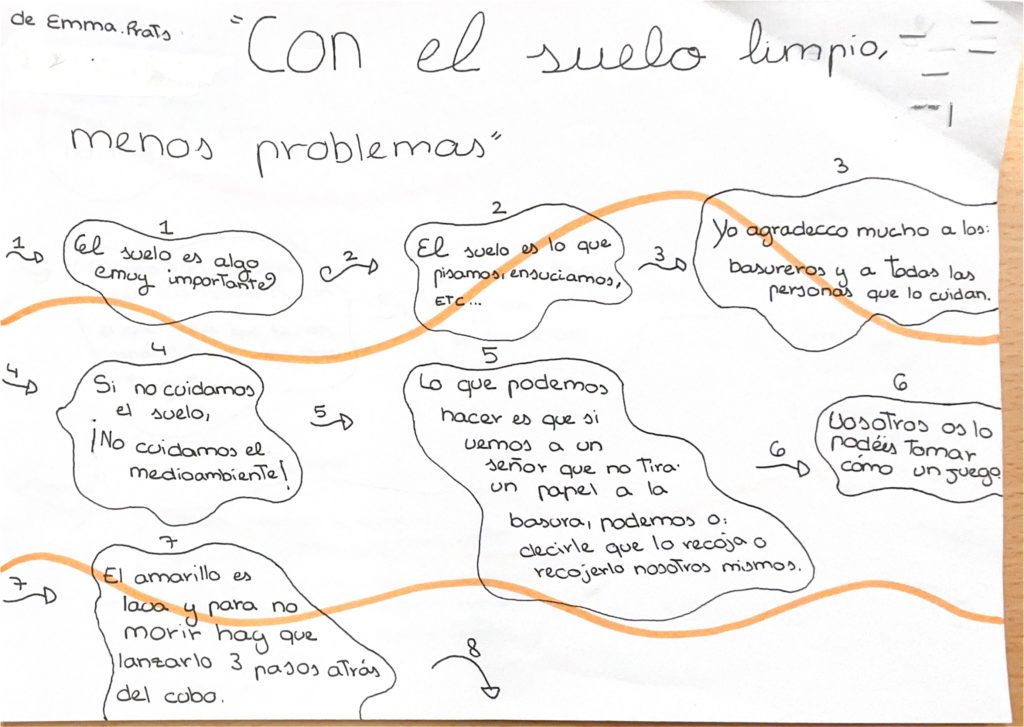 de Emma.Prats.
"Con el suelo limpio,
menos problemas"
1
1
El suelo es algo
emuy importante
2
2
El suelo es lo que
pisamos, ensuciamos,
ETC...
3
3
Yo agradecco mucho a los:
basureros y a todas las
personas que lo cuidan.
4
4
Si no cuidamos
el suelo,
¡No cuidamos el
medioambiente!
5
5
Lo que podemos
hacer es que si
vemos a un
señor que no tira
un papel a la
basura, podemos o:
decirle que lo recoja o
recojerlo nosotros mismos.
6
6
Vosotros os lo
podéis tomar
cómo un juego
7
7
El amarillo es
lava y para no
morir hay que
lanzarlo 3 pasos atrás
del cubo.
8